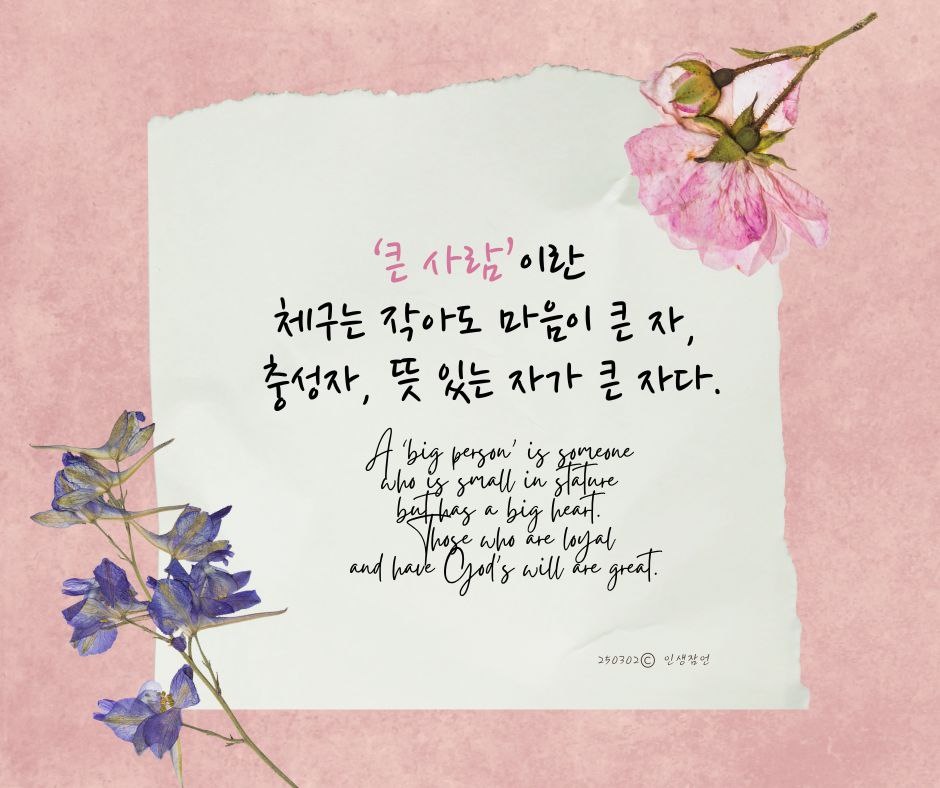 ‘큰 사람’이란
체구는 작아도 마음이 큰 자,
충성자, 뜻 있는 자가 큰 자다.
A ‘big person’ is someone
who is small in stature
but has a big heart.
Those who are loyal
and have God’s will are great.
250302© 인생잠언